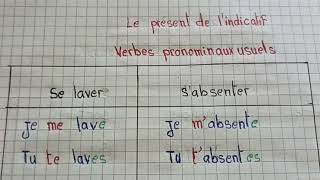 Le présent de l'indicatif
Verbes pronominaux usuels
Se laver s'absenter
Je me lave Je m'absente
Tu te laves Tu t'absentes